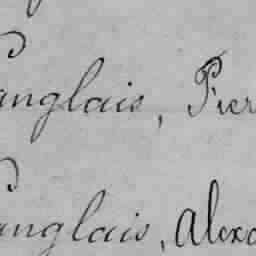 anglais, Pier
anglais, Alexa